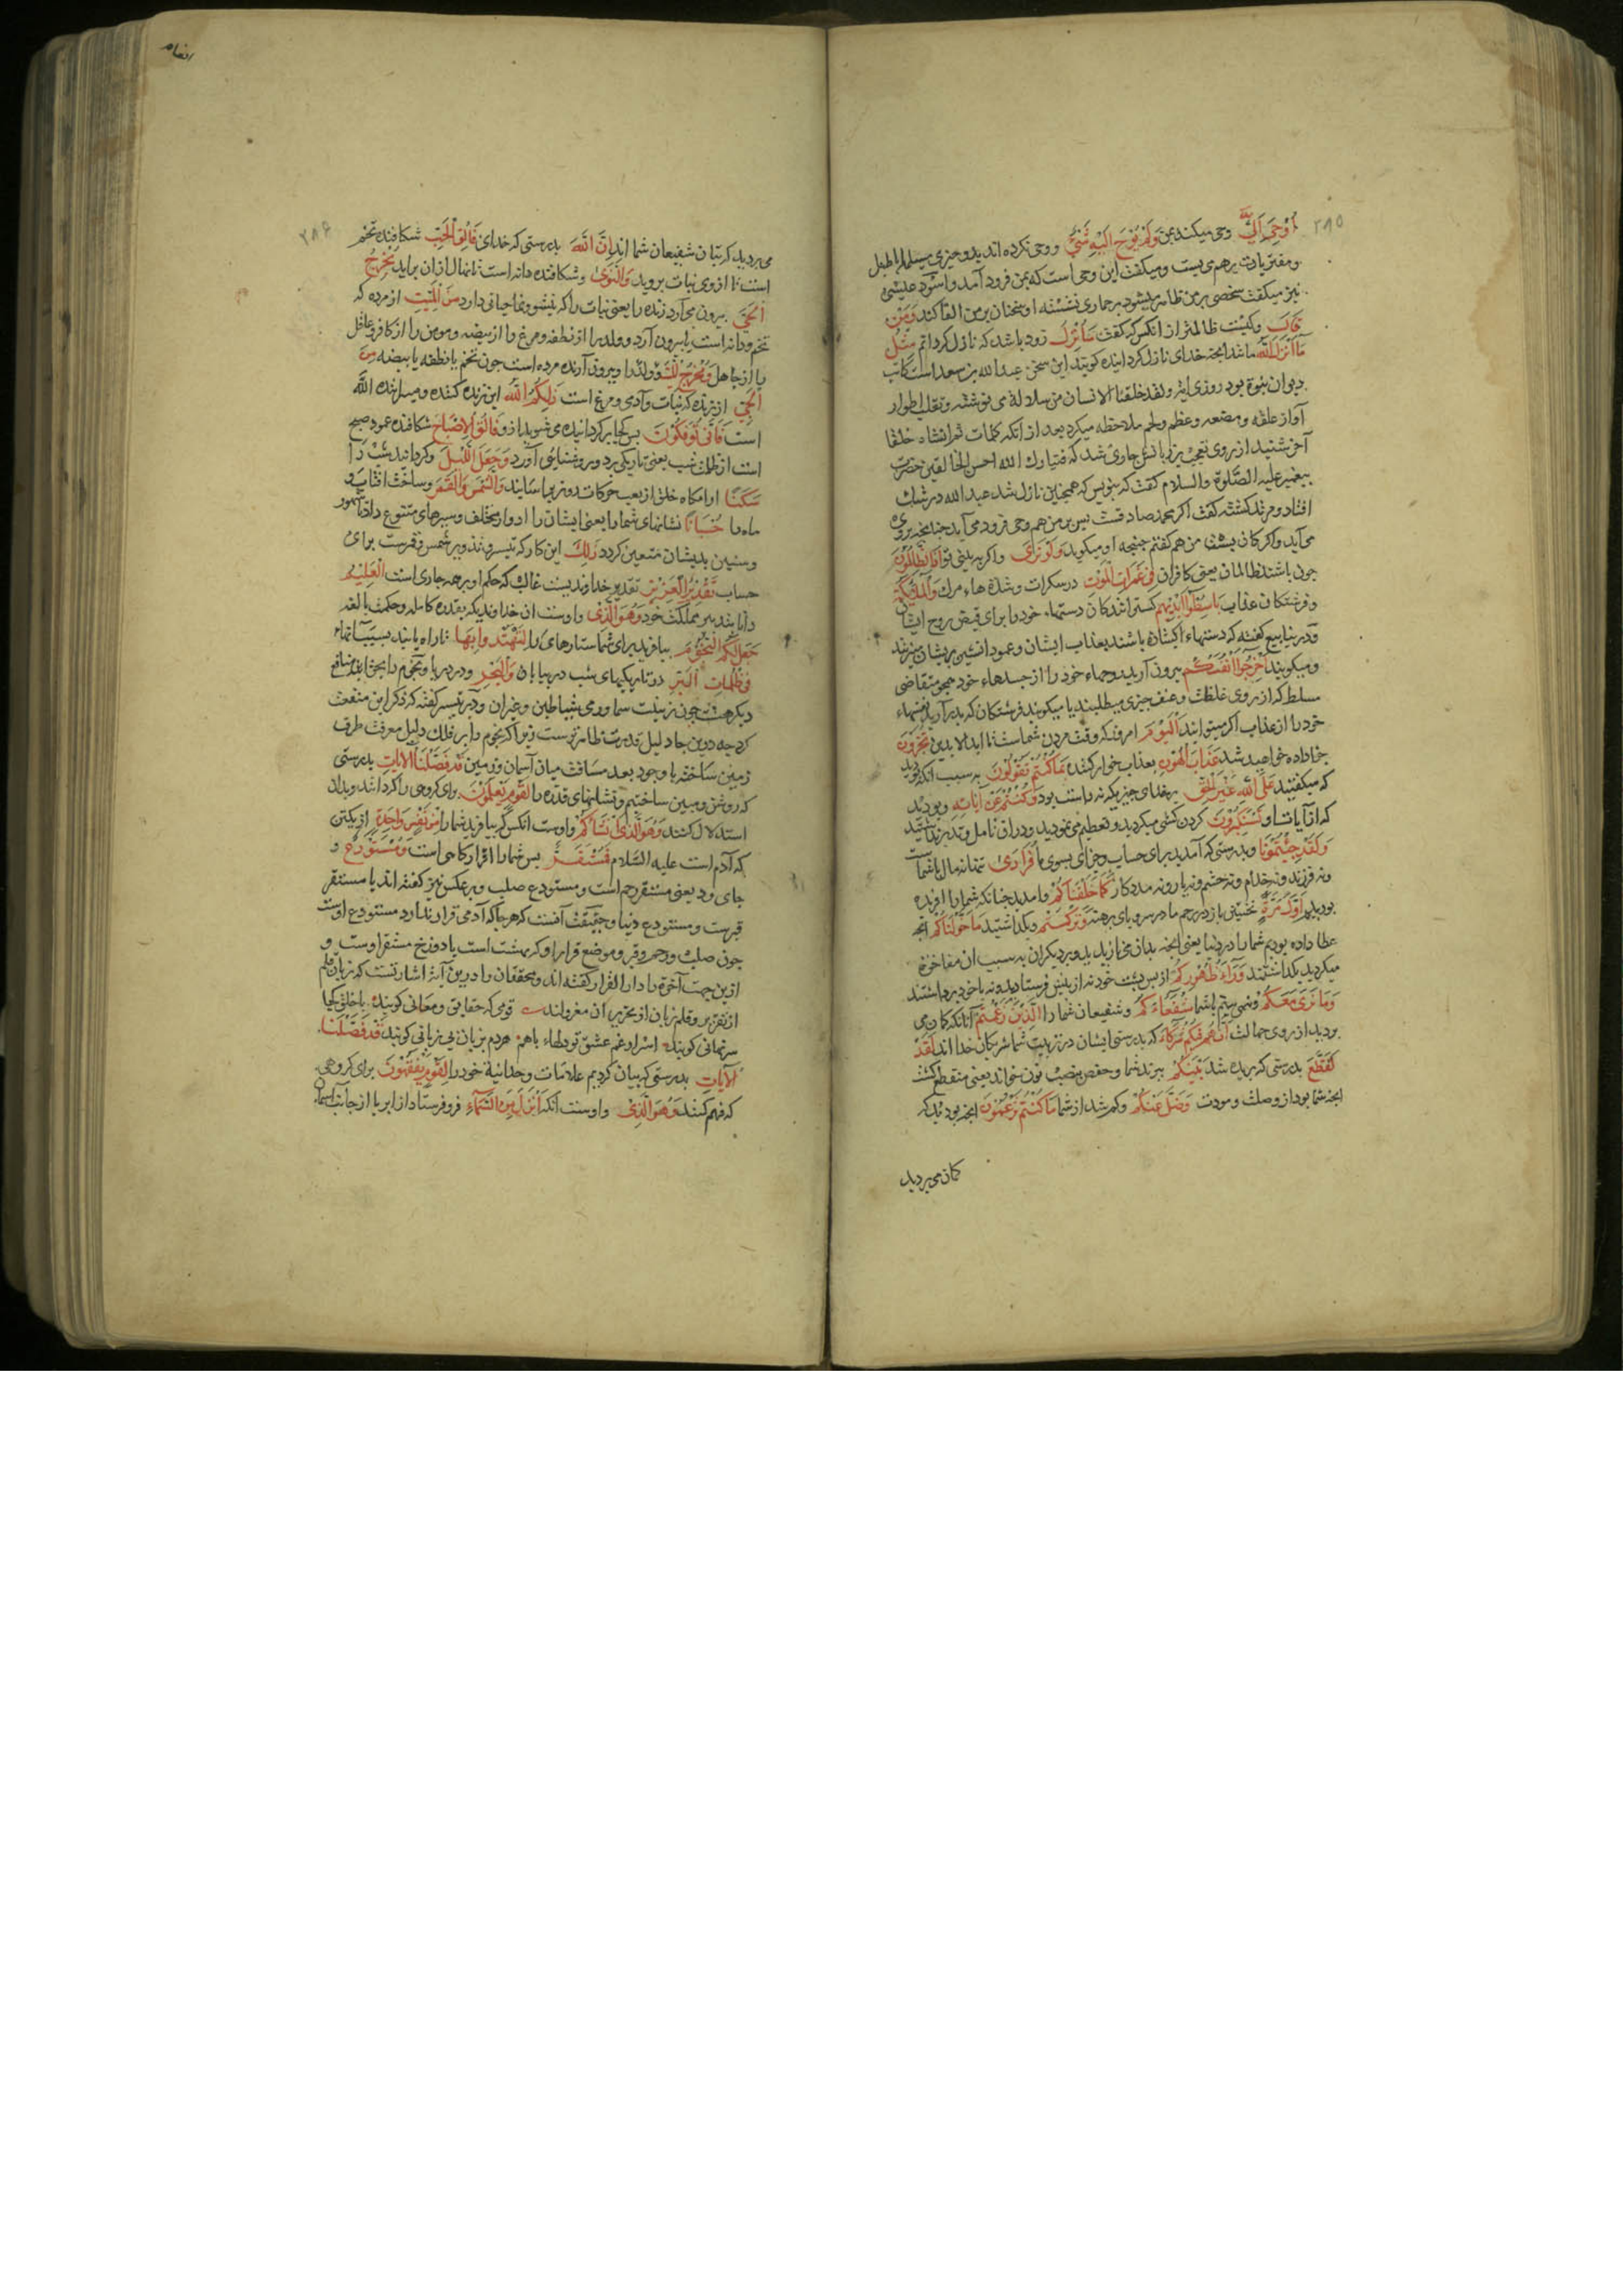 ٣٨٥
أُوْحِیَ اِلَیَّ وحی میکنند بمن وَلَمْ یُوْحَ اِلَیْهِ شَیْءٌ و وحی نکرده اند بدو چیزی
و میکفت این وحی است که بمن فرود آمد و اسود
نیز میکفت شخصی بر من ظاهر میشود بر حماری نشسته او سخنان بر من القا کند وَمَنْ
قَالَ وکیست ظالمتر از انکس که کفت سَاُنْزِلُ زود باشد که نازل کردانم مِثْلَ
مَا اَنْزَلَ اللهُ مانند انچه خدای نازل کردانیده کویند این سخن عبد الله بن سعد است کاتب
دیوان نبوة بود روزی ولقد خلقنا الانسان من سلالة می نوشت و تقلب اطوار
علقه و مضغه و عظم و لحم ملاحظه میکرد بعد از انکه کلمات ثم انشاه خلقا
آخر شنید از روی تعجب بر زبانش جاری شد که فتبارك الله احسن الخالقین حضرت
پیغمبر علیه الصّلوة والسلام کفت که بنویس که همچنین نازل شد عبد الله در شك
افتاد و مرتد کشته کفت اکر محمد صادقست پس بر من هم وحی فرود می آید چنانچه برو
می آید واکر من هم کفتم چنانچه او میکوید وَلَوْ تَرَیٰ واکر به بینی تو اِذِ الظَّالِمُوْنَ
چون باشند ظالمان یعنی کافران فِیْ غَمَرَاتِ الْمَوْتِ در سکرات و شدة هاء مرك وَالْمَلٰئِکَةُ
و فرشتکان عذاب بَاسِطُوْا اَیْدِیْهِمْ کسترانندکان دستهاء خود را برای قبض روح ایشان
و در ینابیع کفته که دستهاء کشاده باشند بعذاب ایشان و عمود اتشین بریشان میزنند
و میکویند اَخْرِجُوْا اَنْفُسَکُمْ بیرون آرید روحهاء خود را از جسدهاء خود همچو متقاضی
مسلط که از روی غلظت و عنف چیزی میطلبند یا میکویند فرشتکان که بدر آرید نفسهاء
خود را از عذاب اکر میتوانید اَلْیَوْمَ امروز که وقت مردن شماست تا ابد الابدین تُجْزَوْنَ
جزا داده خواهید شد عَذَابَ الْهُوْنِ بعذاب خوار کننده بِمَا کُنْتُمْ تَقُوْلُوْنَ به سبب انکه بودید
که میکفتید عَلَی اللهِ غَیْرَ الْحَقِّ بر خدای چیزی که نه راست بود وَکُنْتُمْ عَنْ اٰیَاتِهِ و بودید
که از آیات او تَسْتَکْبِرُوْنَ کردن کشی میکردید و تعظیم نمی نمودید و در ان تامل و تدبر
وَلَقَدْ جِئْتُمُوْنَا وبدرستی که آمدید برای حساب و جزای بسوی ما فُرَادٰی تنها نه مال با شماست
و نه فرزند و نه خدام و نه حشم و نه یار و نه مددکار کَمَا خَلَقْنَاکُمْ وآمدید چنانکه شما را افریده
بودیم اَوَّلَ مَرَّةٍ نخستین بار در رحم مادر سر و پای برهنه وَتَرَکْتُمْ و بکذاشتید مَا خَوَّلْنَاکُمْ انچه
عطا داده بودیم شما را در دنیا یعنی انچه بدان می نازیدید و بر دیکران به سبب ان مفاخرة
میکردید بکذاشتید وَرَآءَ ظُهُوْرِکُمْ از پس پشت خود نه از پیش فرستادید و نه با خود برداشتید
وَمَا نَرٰی مَعَکُمْ و نمی بینیم باشما شُفَعَآءَکُمْ و شفیعان شما را اَلَّذِیْنَ زَعَمْتُمْ آنانکه کمان می
بردید از روی جهالت اَنَّهُمْ فِیْکُمْ شُرَکَآءُ که بدرستی ایشان در تربیت شما شریکان خدا اند لَقَدْ
تَقَطَّعَ بدرستی که بریده شد بَیْنَکُمْ پیوند شما و حفص بنصب نون خواند یعنی منقطع کشت
انچه شما بود از وصلت و مودت وَضَلَّ عَنْکُمْ و کم شد از شما مَا کُنْتُمْ تَزْعُمُوْنَ انچه بودید که
کمان می بردید
انعام
٣٨٦
می بردید که بتان شفیعان شما اند اِنَّ اللهَ بدرستی که خدای فَالِقُ الْحَبِّ شکافنده تخم
است تا از وی نبات بروید وَالنَّوٰی و شکافنده دانه است تا نهال از ان براید یُخْرِجُ
الْحَیَّ بیرون می آرد زنده را یعنی نبات را که بنشو و نما حیاتی دارد مِنَ الْمَیِّتِ از مرده که
تخم و دانه است یا بیرون آرد و ولد را از نطفه و مرغ را از بیضه و مومن را از کافر و عاقل
را از جاهل وَمُخْرِجُ الْمَیِّتِ و بیرون آرنده مرده است چون تخم یا نطفه یا بیضه مِنَ
الْحَیِّ از زنده که نبات و آدمی و مرغ است ذٰلِکُمُ اللهُ این زنده کننده و میراننده الله
است فَاَنّٰی تُؤْفَکُوْنَ پس کجا بر کردانیده می شوید از و فَالِقُ الْاِصْبَاحِ شکافنده عمود صبح
است از ظلمت شب یعنی تاریکی برد و روشنایی آورد وَجَعَلَ اللَّیْلَ و کردانید شب را
سَکَنًا ارامکاه خلق از تعب حرکات روز بیاسایند وَالشَّمْسَ وَالْقَمَرَ و ساخت افتاب و
ماه را حُسْبَانًا نشانهای شما را یعنی ایشان را ادوار مختلف و سیرهای متنوع داد تا شهور
و سنین بدیشان متعین کردد ذٰلِكَ این کار که تیسیر شمس و قمرست برای
حساب تَقْدِیْرُ الْعَزِیْزِ تقدیر خداوندیست غالب که حکم او بر همه جاری است الْعَلِیْمِ
دانا بتدبیر مملکت خود وَهُوَ الَّذِیْ و اوست ان خداوندی که بقدرة کامله و حکمت بالغه
جَعَلَ لَکُمُ النُّجُوْمَ بیافرید برای شما ستارهای را لِتَهْتَدُوْا بِهَا تا راه یابید بسبب آنها
فِیْ ظُلُمَاتِ الْبَرِّ در تاریکیهای شب در بیابان وَالْبَحْرِ و در دریا و نجوم را بجز این منافع
دیکر هست چون زینت سما و رمی شیاطین و غیر ان و در تیسیر کفته که ذکر این منفعت
کرد چه درین جا دلیل قدرت ظاهر ترست زیرا که نجوم را بر فلك دلیل معرفت طرف
زمین ساخته با وجود بعد مسافت میان آسمان و زمین قَدْ فَصَّلْنَا الْاٰیَاتِ بدرستی
که روشن و مبین ساختیم و نشانهای قدرة را لِقَوْمٍ یَّعْلَمُوْنَ برای کروهی را که دانند و بدان
استدلال کنند وَهُوَ الَّذِیْ اَنْشَاَکُمْ و اوست انکس که بیافرید شما را مِنْ نَفْسٍ وَاحِدَةٍ از یکتن
که آدم است علیه السّلام فَمُسْتَقَرٌّ پس شما را قرارکاهی است وَمُسْتَوْدَعٌ و
جای ودیعتی مستقر رحم است و مستودع صلب و بر عکس نیز کفته اند یا مستقر
قبرست و مستودع دنیا و حقیقت آنست که هر جا که آدمی قرار ندارد مستودع اوست
چون صلب و رحم و قبر و موضع قرار او که بهشت است یا دوزخ مستقر اوست و
ازین جهت آخرة را دار القرار کفته اند و محققان را درین آیة اشارتست که زبان قلم
از تقریر و قلم زبان از تحریر ان معزولند قومی که حقایق و معانی کویند با خلق کجا
سر نهانی کویند اسرار غم عشق تو دلهاء باهم هر دم بزبان بی زبانی کویند قَدْ فَصَّلْنَا
الْاٰیَاتِ بدرستی که بیان کردیم علامات وحدانیة خود را لِقَوْمٍ یَّفْقَهُوْنَ برای کروهی
که فهم کنند وَهُوَ الَّذِیْ و اوست انکه اَنْزَلَ مِنَ السَّمَآءِ فرو فرستاد از ابر یا از جانب آسمان